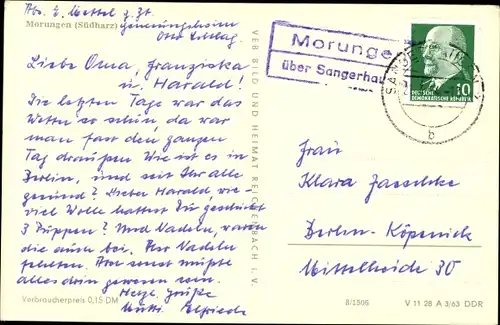 Abs. E. Mettel z. Zt.
Morungen (Südharz) Genesungsheim
Otto Schlag
Liebe Oma, Franziska
u. Harald!
Die letzten Tage war das
Wetter so schön, da war
man fast den ganzen
Tag draußen. Wie ist es in
Berlin, und seid Ihr alle
gesund? Lieber Harald, wie-
viel Wolle hattest Du geschickt
3 Puppen? Und Nadeln, waren
die auch bei. Paar Nadeln
fehlten. Am sonst müßte
alles drin gewesen sein.
Herzl. Grüße
Mutti Elfriede
Verbraucherpreis 0,15 DM
VEB BILD UND HEIMAT REICHENBACH I. V.
Morunge
über Sangerhau
SANGE
b
10
DEUTSCHE
DEMOKRATISCHE REPUBLIK
Frau
Klara
Berlin-Köpenick
Mittelheide 30
8/1506
V 11 28 A 3/63 DDR